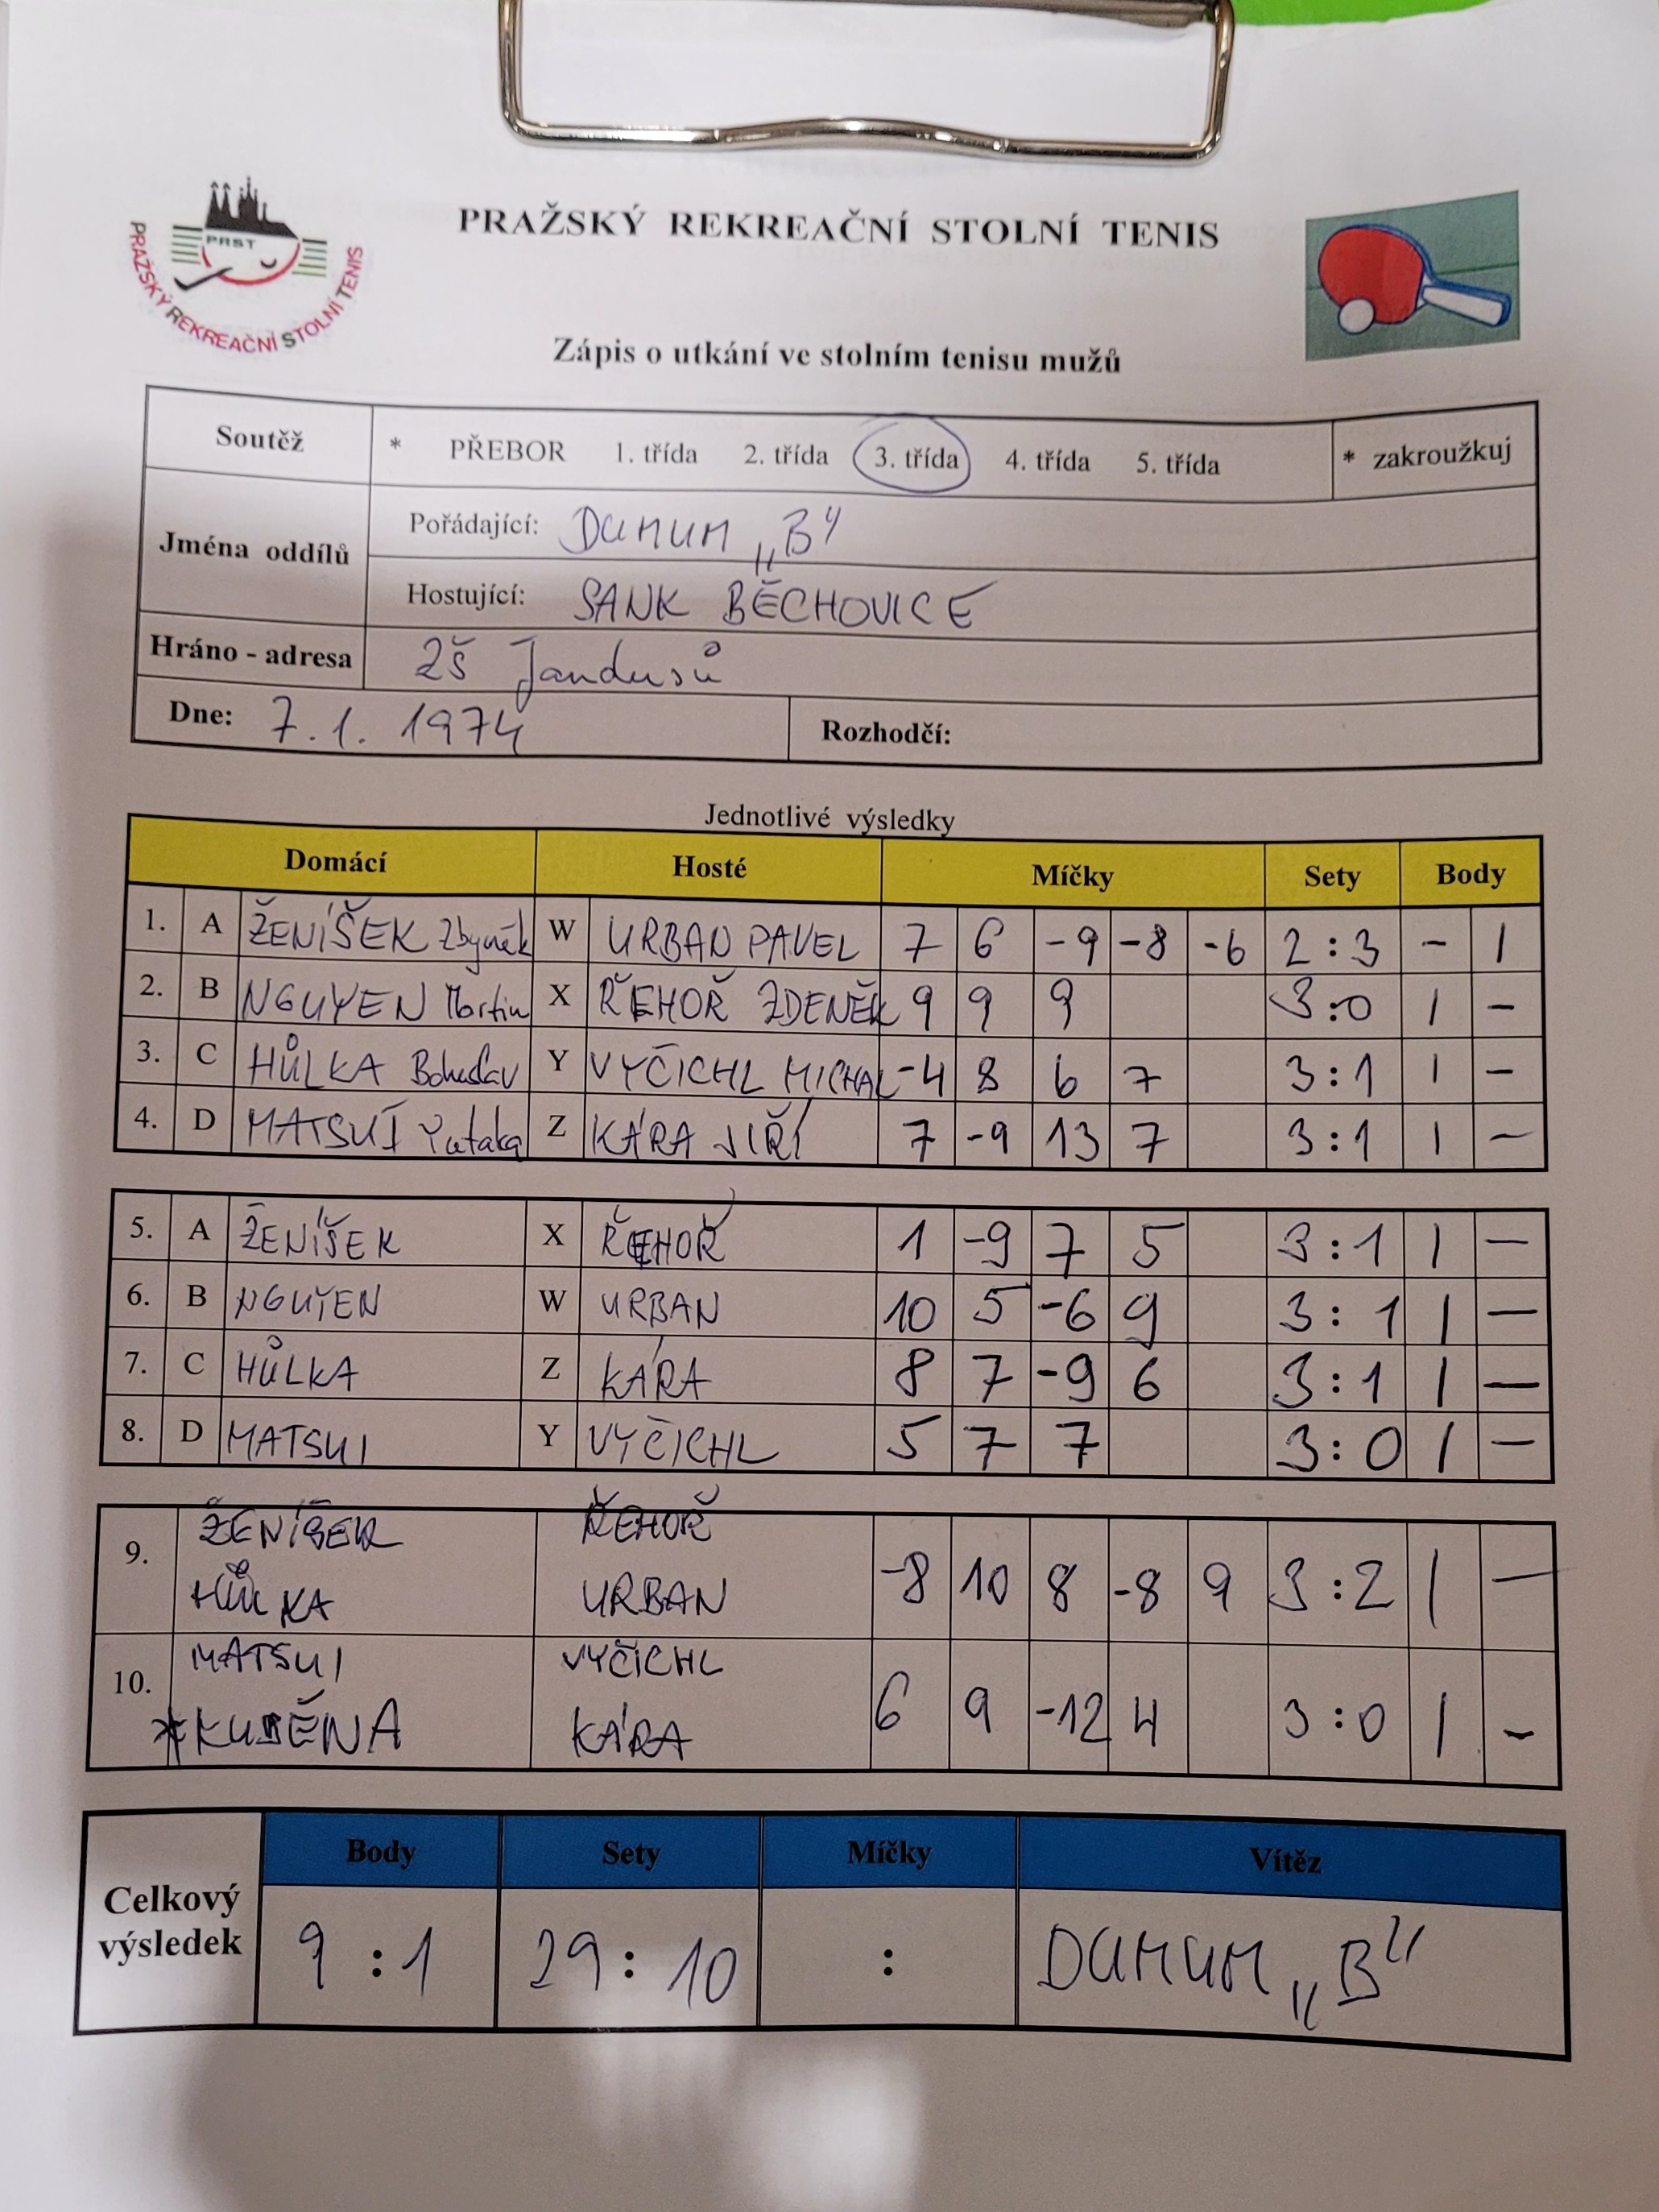 PRST
PRAŽSKÝ REKREAČNÍ STOLNÍ TENIS
PRAŽSKÝ REKREAČNÍ STOLNÍ TENIS
Zápis o utkání ve stolním tenisu mužů
Soutěž * PŘEBOR 1. třída 2. třída 3. třída 4. třída 5. třída * zakroužkuj
Jména oddílů
Pořádající: DUMUM „B"
Hostující: SANK BĚCHOVICE
Hráno - adresa ZŠ Jandusů
Dne: 7.1. 1974 Rozhodčí:
Jednotlivé výsledky
Domácí Hosté Míčky Sety Body
1. A ŽENÍŠEK Zbyněk W URBAN PAVEL 7 6 -9 -8 -6 2:3 - 1
2. B NGUYEN Martin X ŘEHOŘ ZDENĚK 9 9 9 3:0 1 -
3. C HŮLKA Bohuslav Y VYČÍCHL MICHAL -4 8 6 7 3:1 1 -
4. D MATSUI Yutaka Z KÁRA JIŘÍ 7 -9 13 7 3:1 1 -
5. A ŽENÍŠEK X ŘEHOŘ 1 -9 7 5 3:1 1 -
6. B NGUYEN W URBAN 10 5 -6 9 3:1 1 -
7. C HŮLKA Z KÁRA 8 7 -9 6 3:1 1 -
8. D MATSUI Y VYČÍCHL 5 7 7 3:0 1 -
ŽENÍŠEK ŘEHOŘ
9. -8 10 8 -8 9 3:2 1 -
HŮLKA URBAN
MATSUI VYČÍCHL
10. 6 9 -12 4 3:0 1 -
KÁRA
Celkový výsledek
Body Sety Míčky Vítěz
9:1 29:10 : DUMUM „B"